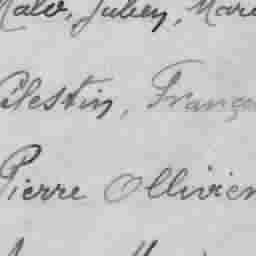 Malo, Julien, Marc
Célestin, Franço
Pierre Ollivier